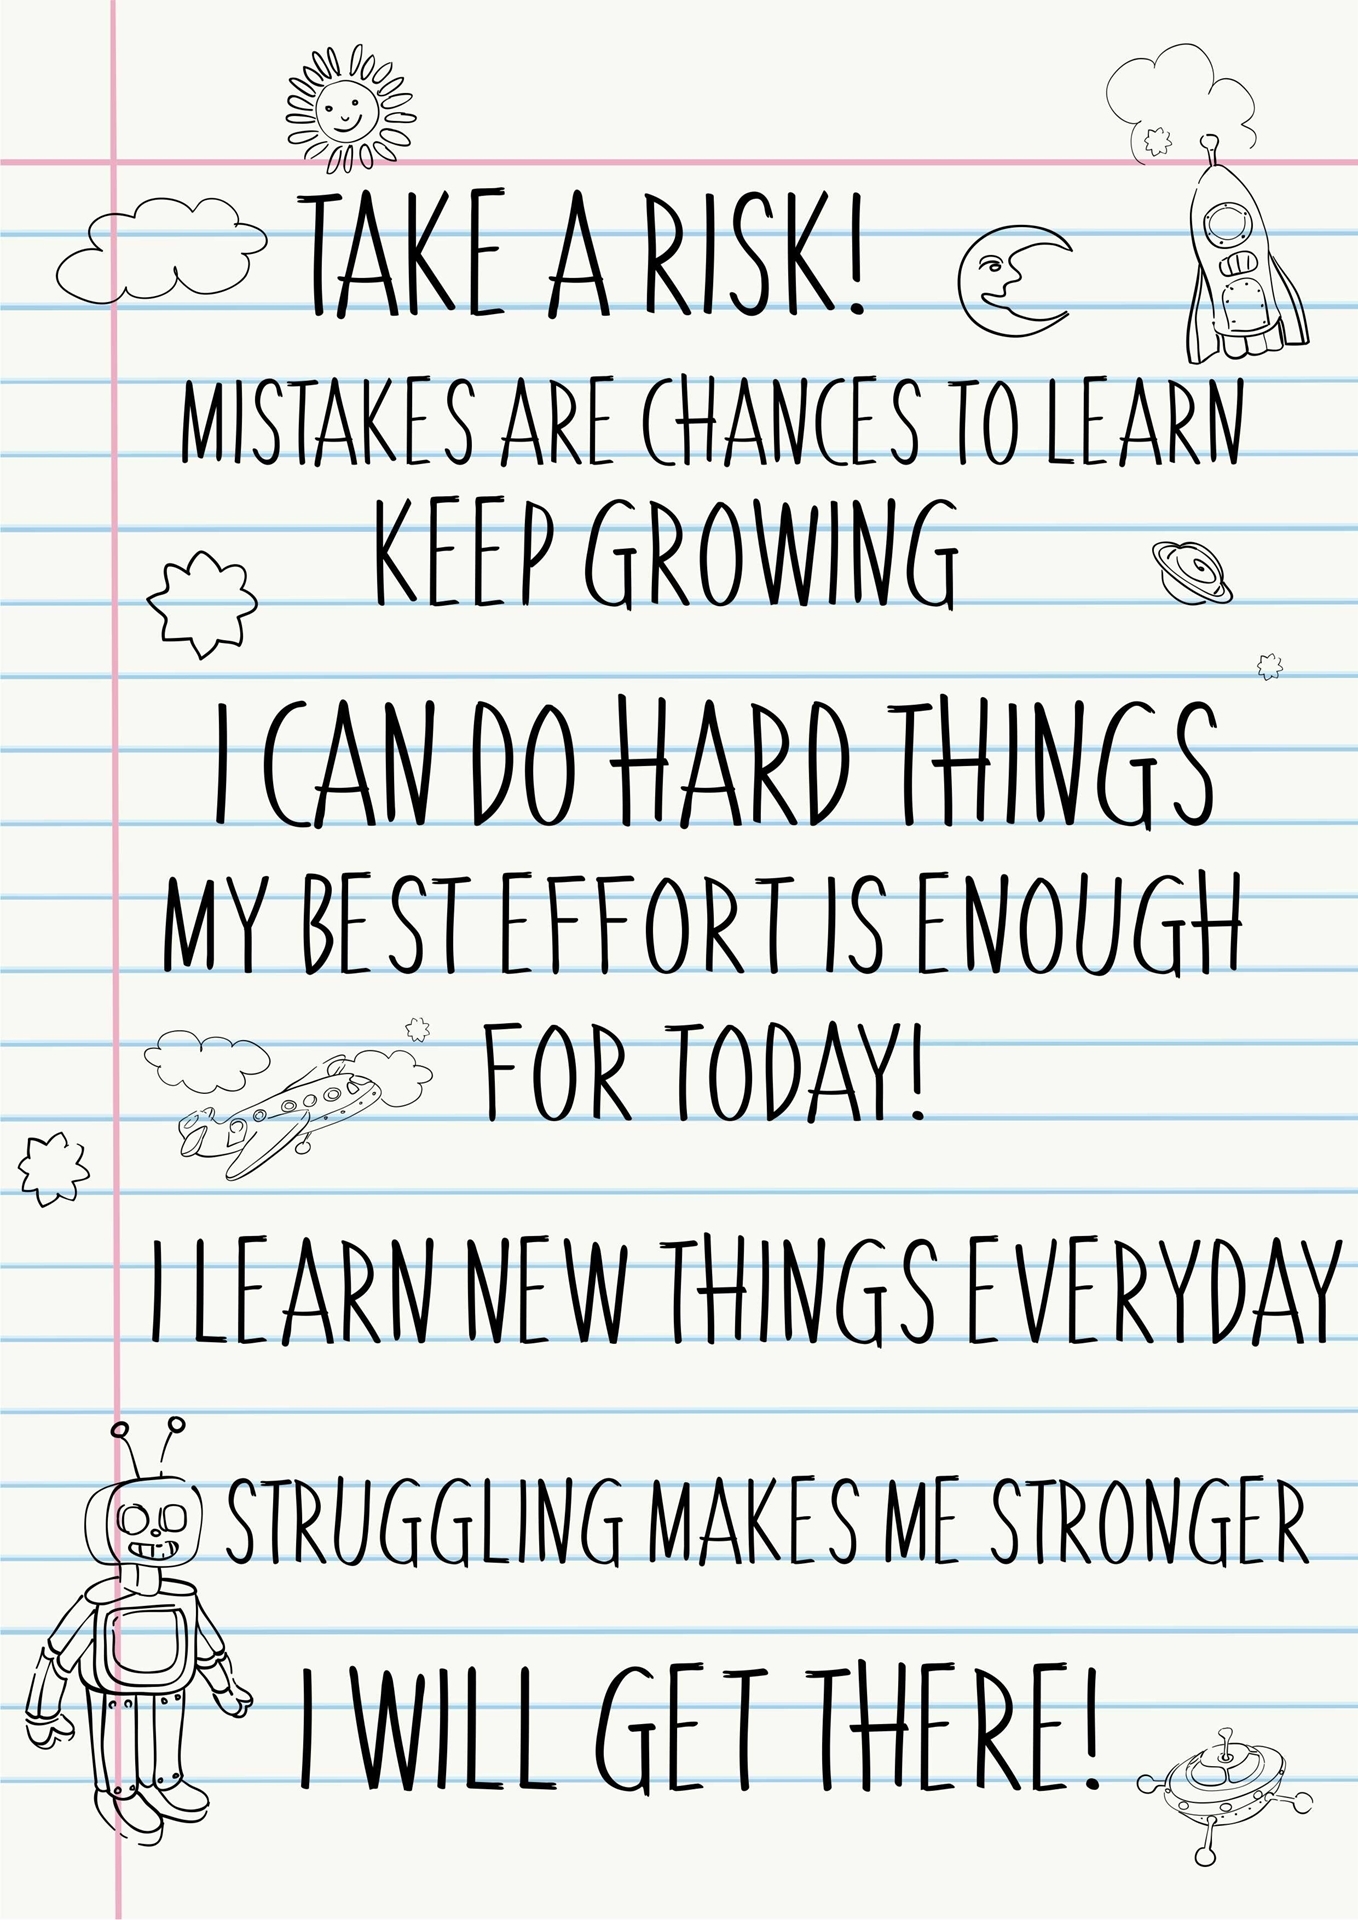 TAKE A RISK!
MISTAKES ARE CHANCES TO LEARN
KEEP GROWING
I CAN DO HARD THINGS
MY BEST EFFORT IS ENOUGH
FOR TODAY!
I LEARN NEW THINGS EVERYDAY
STRUGGLING MAKES ME STRONGER
I WILL GET THERE!